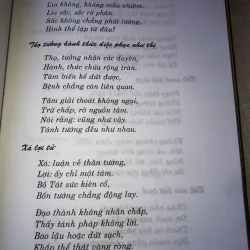 Lìa không, không mẫu nhiễm.
Lìa sắc, sắc rõ phân.
Sắc không chẳng phải tướng.
Hình thể lập từ đâu!
Thọ tưởng hành thức diệc phục như thị
Thọ, tưởng nhận các duyên,
Hành, thức chứa rộng tràn.
Tâm biến kế dứt được,
Bệnh chẳng còn liên quan.
Tâm giải thoát không ngại,
Trừ chấp, rõ nguồn tâm.
Nói rằng: cũng như vậy.
Tánh tướng đều như nhau.
Xá lợi tử
Xá: luận về thân tướng,
Lợi: ấy chỉ một tâm.
Bồ Tát sức kiên cố,
Bốn tướng chẳng động lay.
Đạo thành không nhân chấp,
Thấy tánh pháp không lời.
Bao lậu hoặc dứt sạch,
Khắp thể thật vàng ròng.